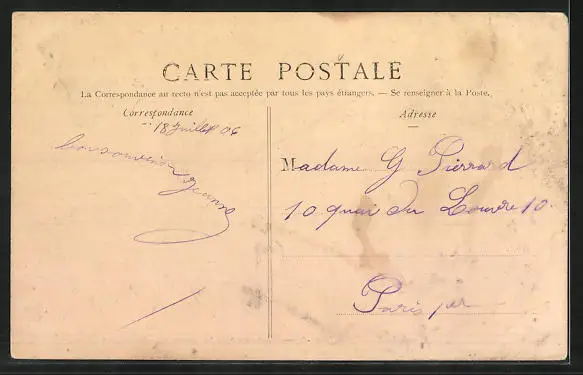 CARTE POSTALE
La Correspondance au recto n'est pas acceptée par tous les pays étrangers. — Se renseigner à la Poste.
Correspondance
18 Juillet 06
bon souvenir
Jeanne
Adresse
Madame G Pierrard
10 quai du Louvre 10
Paris 1er